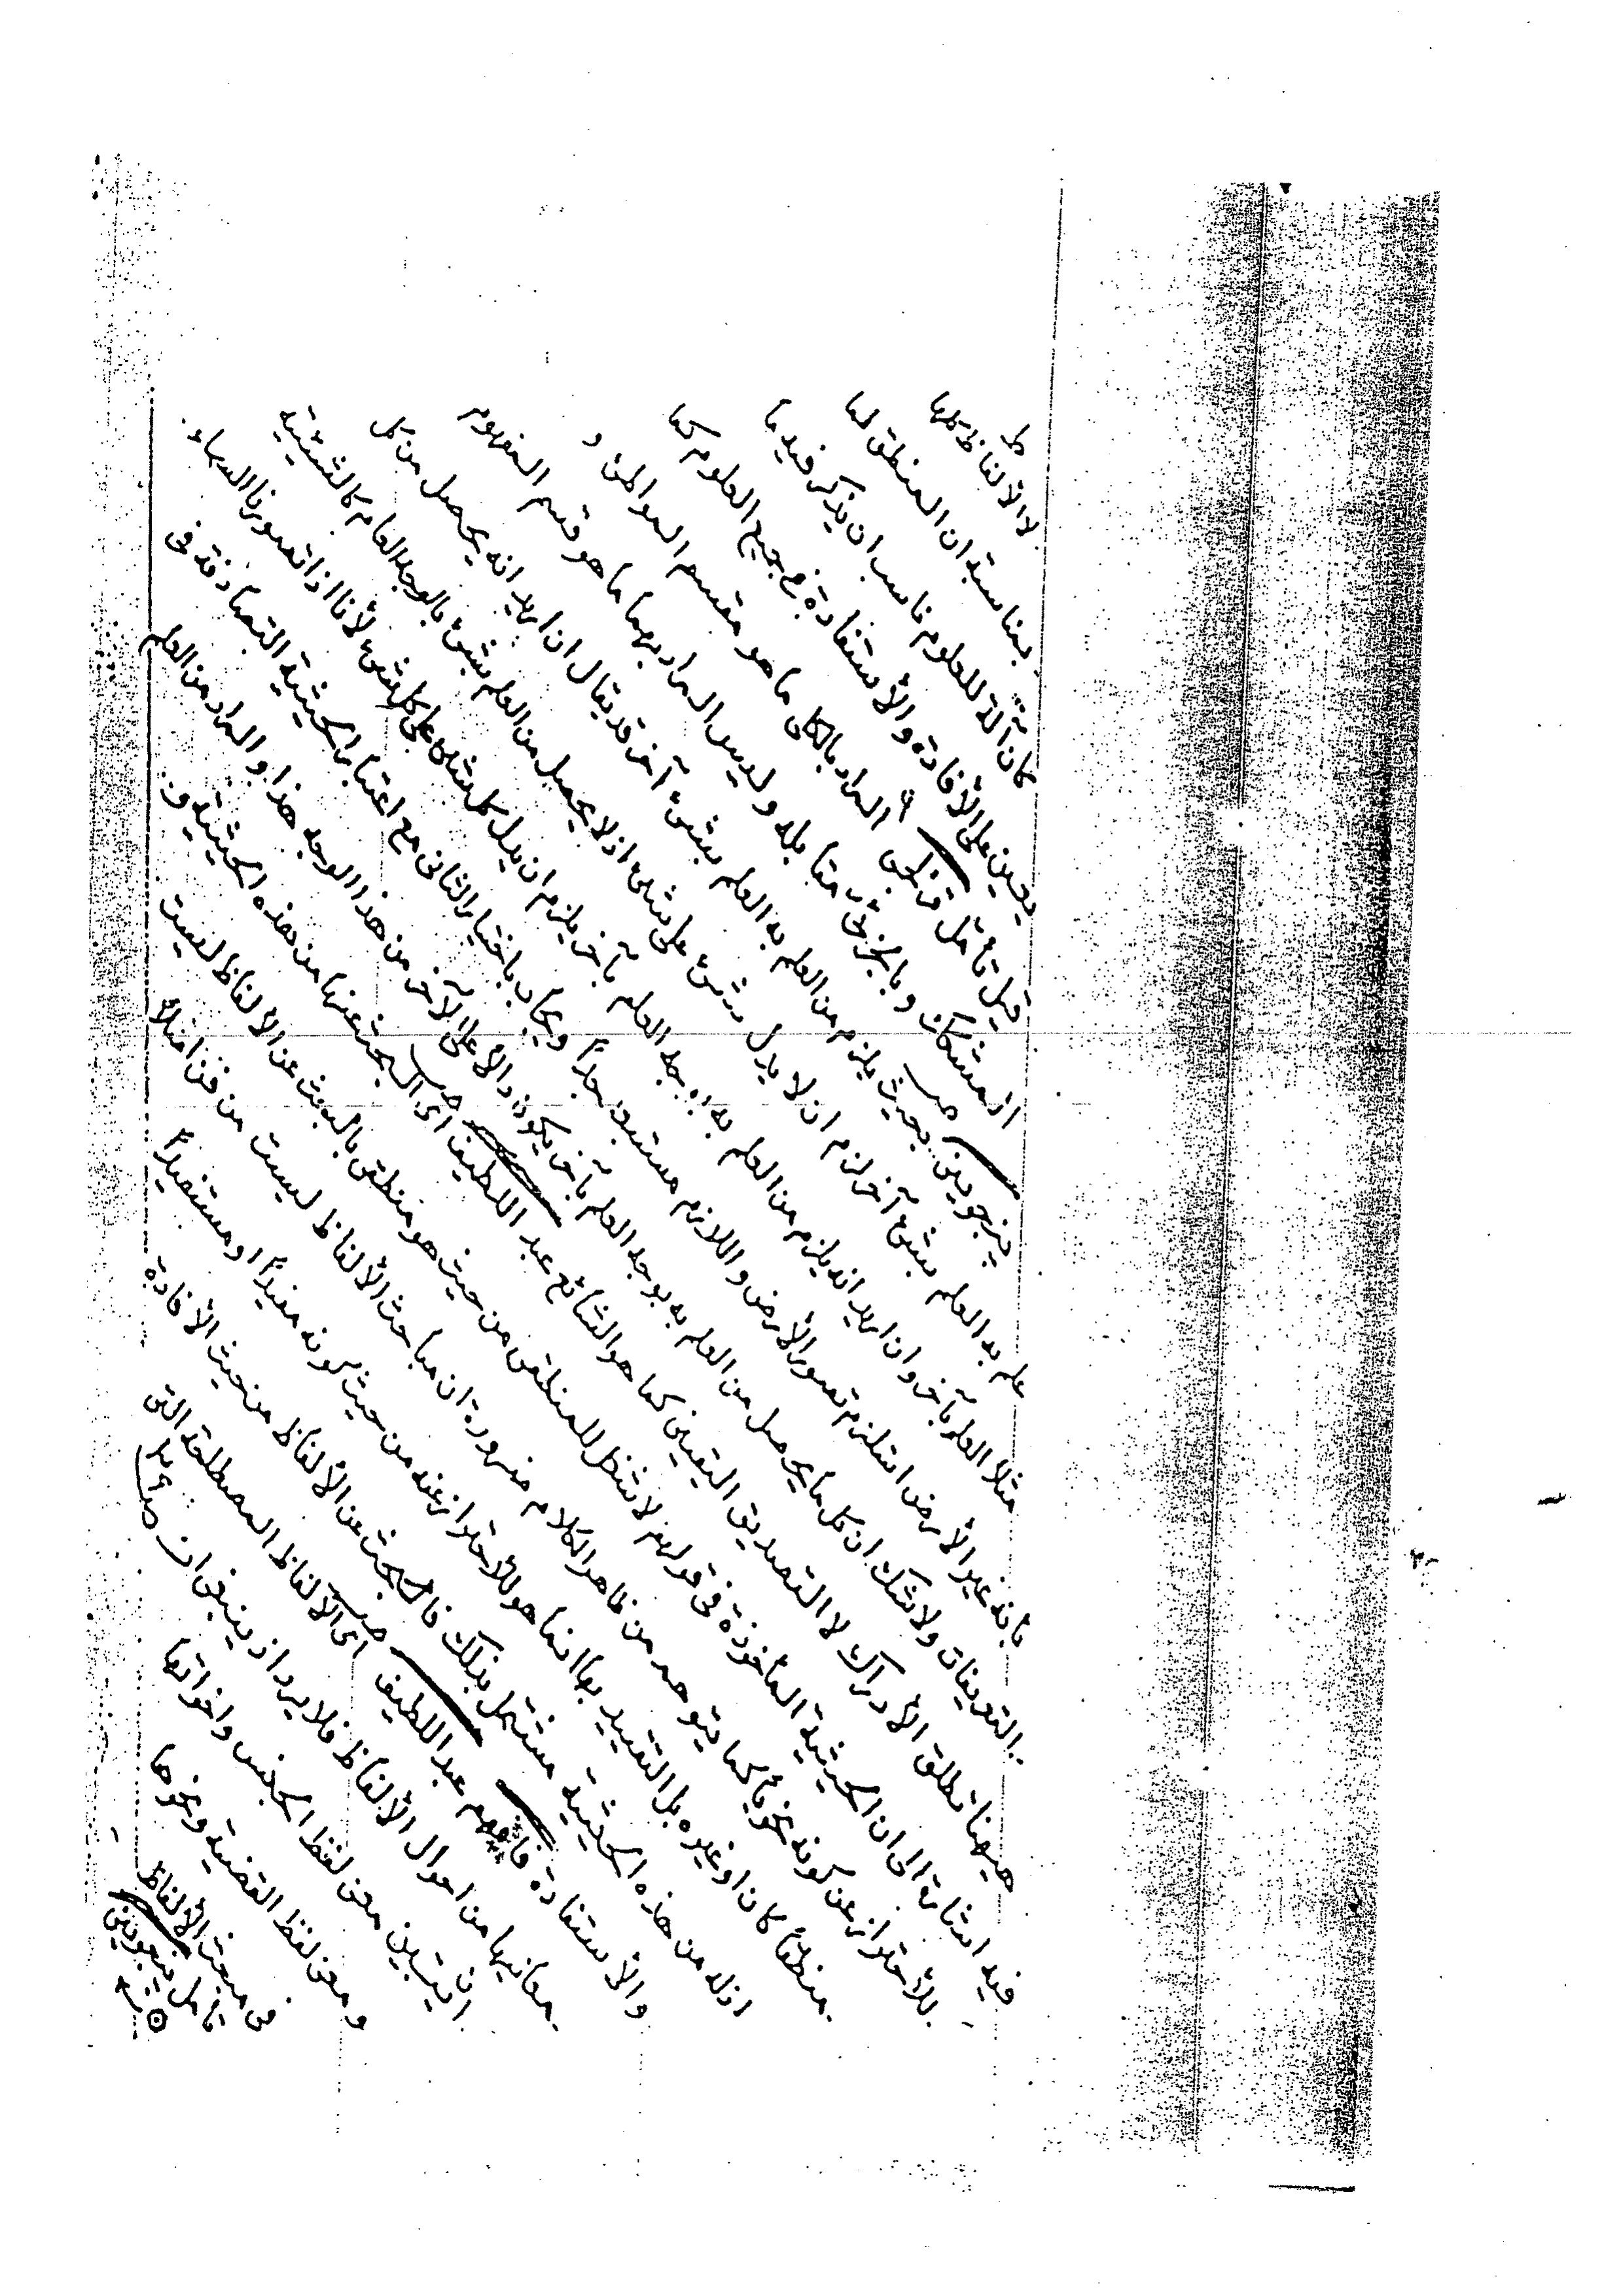 لا الألفاظ كلها
بمناسبة ان المنطق لما
كان آلة للعلوم ناسب ان يذكر فيه ما
يعين على الأفادة والأستفادة في جميع العلوم كما
قيل تأمل قزلجى المراد بالكلى ما هو مقسم المواطئ و
المشكك وبالجزئى مقابله وليس المراد بهما ما هو قسم المفهوم
پنجوينى بحيث يلزم من العلم به العلم بشئ آخر قد يقال ان اريد انه يحصل من كل
علم به العلم بشئ آخر لزم ان لا يدل شئ على شئ اذ لا يحصل من العلم بشئ بالوجه العام كالشيئية
مثلا العلم بآخر وان اريد انه يلزم من العلم به بوجه العلم بآخر يلزم ان يدل كل شئ على كل شئ لأنا اذا تصورنا السماء
بأنه غير الأرض استلزم تصور الأرض واللازم مستبعد جداً ويجاب باختيار الثانى مع اعتبار الحيثية فى
التعريفات ولا شك ان كل ما يحصل من العلم به بوجه العلم بآخر يكون دالا على الآخر من هذا الوجه هذا والمراد من العلم
هيهنا مطلق الأدراك لا التصديق اليقينى كما هو الشائع عبد اللطيف اى البحث عنها من هذه الحيثية و
فيه اشارة الى ان الحيثية المأخوذة فى قولهم لا شغل للمنطقى من حيث هو منطقى بالبحث عن الألفاظ ليست
للأحتراز عن كونه نحويا كما يتوهم من ظاهر الكلام ضرورة ان مباحث الألفاظ ليست من فن اصلاً
منطقيا كان او غيره بل التقييد بها انما هو للأحتراز عنه من حيث كونه مفيداً او مستفيداً
اذ له من هذه الحيثية مشتغل بذلك فالبحث عن الألفاظ من حيث الأفادة
والأستفادة فافهم عبد اللطيف اى الألفاظ المصطلحة التى
معانيها من احوال الألفاظ فلا يرد اذ ينبغى ان
يتبين معنى لفظ الجنس واخواتها
ومعنى لفظ القضية ونحوها
فى مبحث الألفاظ
تأمل پنجوينى